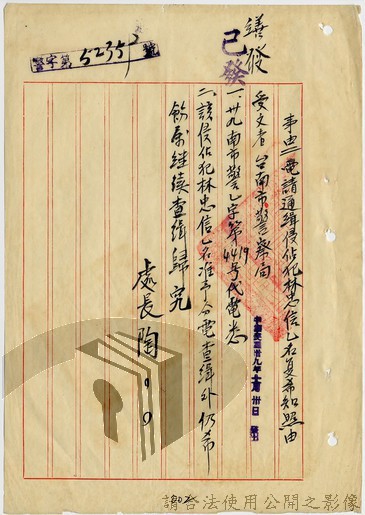 繕發
已發
警字第52355號
事由：電請通緝侵佔犯林忠信乙名复希知照由
受文者 台南市警察局
中華民國卅九年 月卅日 發出
一、卅九南市警乙字第4419号代電悉
二、該侵佔犯林忠信乙名准予分電查緝外仍希
飭屬继续查緝歸究
處長 陶
202
請合法使用公開之影像